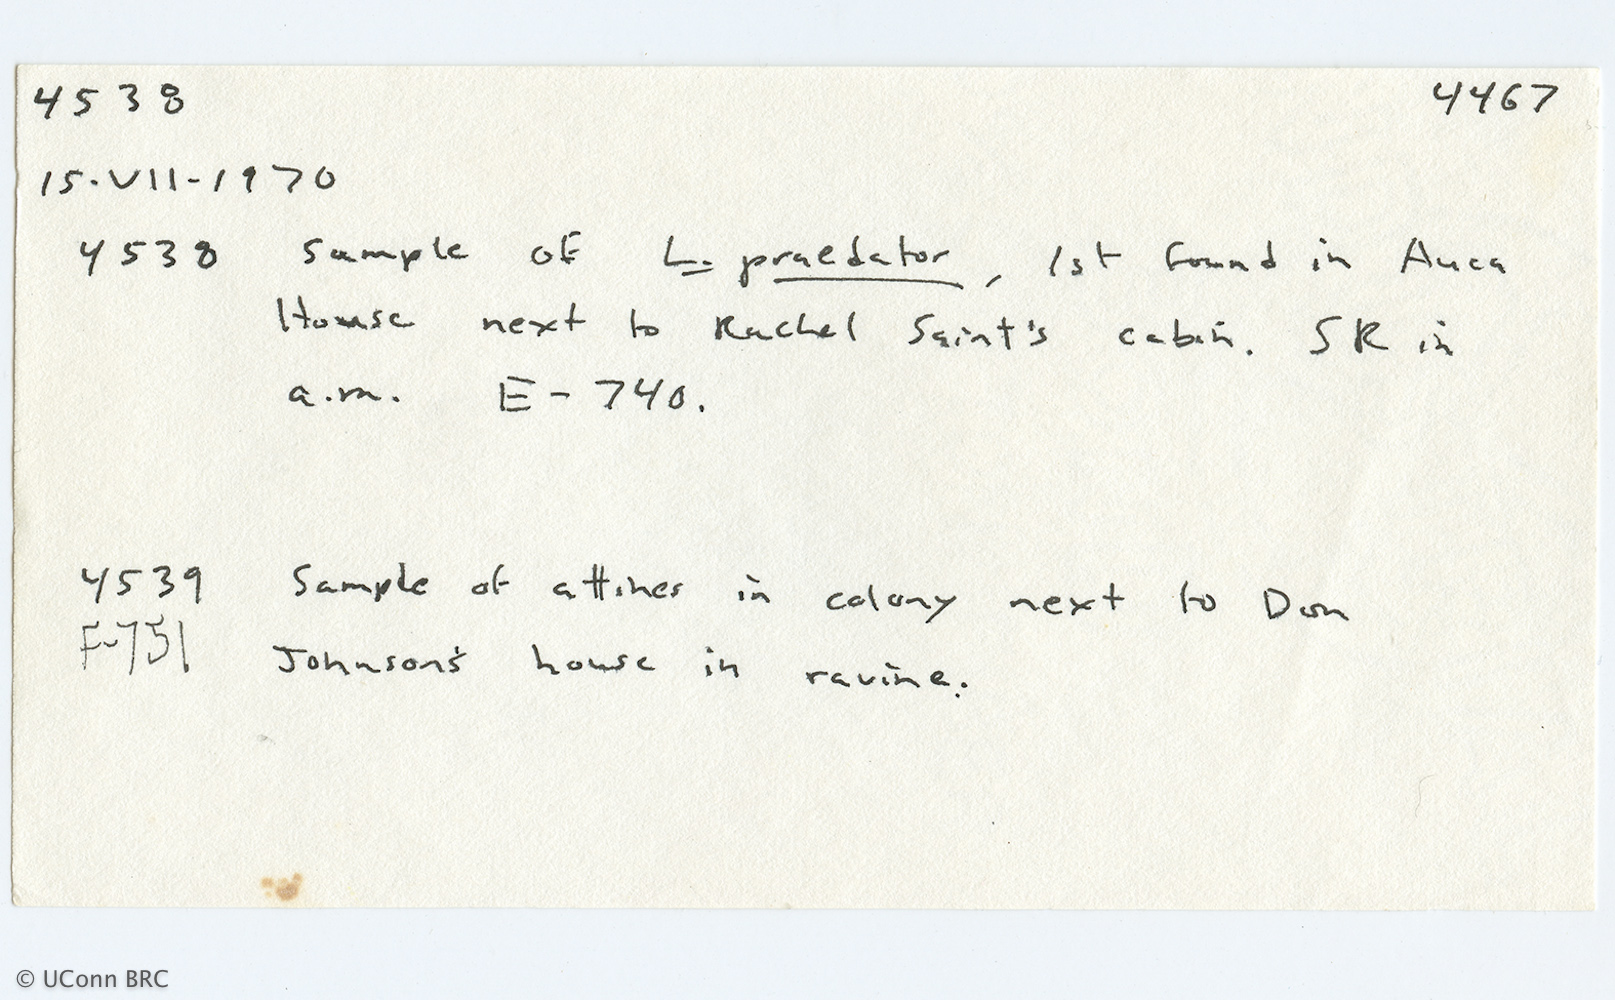 4538 4467
15·VII-1970
4538 Sample of L. praedator, 1st found in Auca
House next to Rachel Saint's cabin. SR in
a.m. E-740.
4539 Sample of attines in colony next to Don
F-751 Johnson's house in ravine.
© UConn BRC